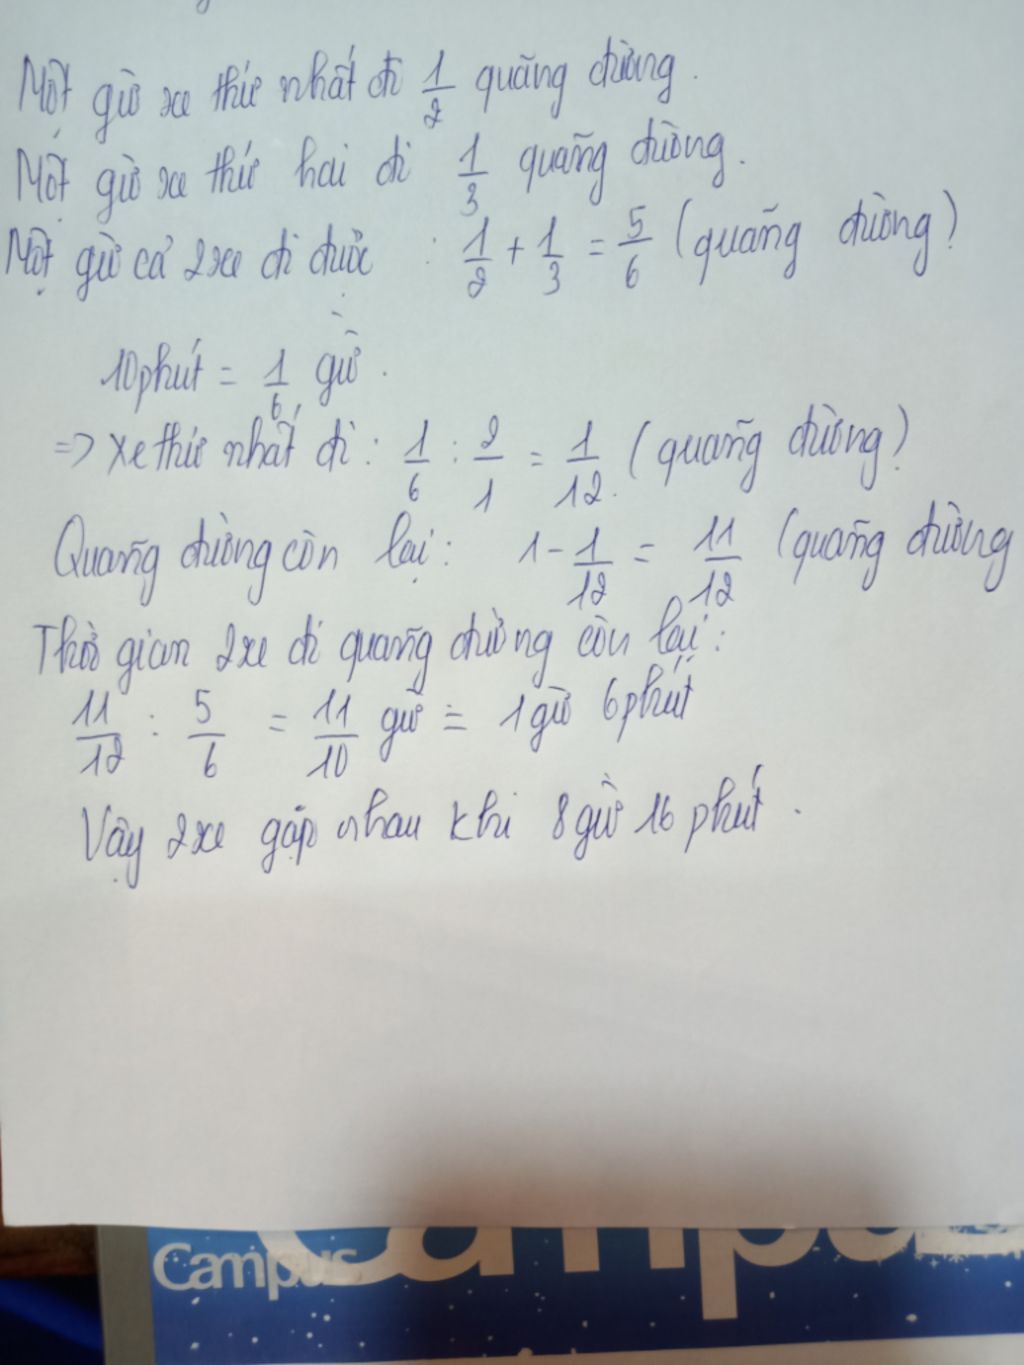 Một giờ xe thứ nhất đi 1/2 quãng đường.
Một giờ xe thứ hai đi 1/3 quãng đường.
Một giờ cả 2 xe đi được : 1/2 + 1/3 = 5/6 (quãng đường)
10 phút = 1/6 giờ.
=> Xe thứ nhất đi : 1/6 : 2/1 = 1/12 (quãng đường)
Quãng đường còn lại : 1 - 1/12 = 11/12 (quãng đường
Thời gian 2 xe đi quãng đường còn lại :
11/12 : 5/6 = 11/10 giờ = 1 giờ 6 phút
Vậy 2 xe gặp nhau khi 8 giờ 16 phút.
Campus
Campus